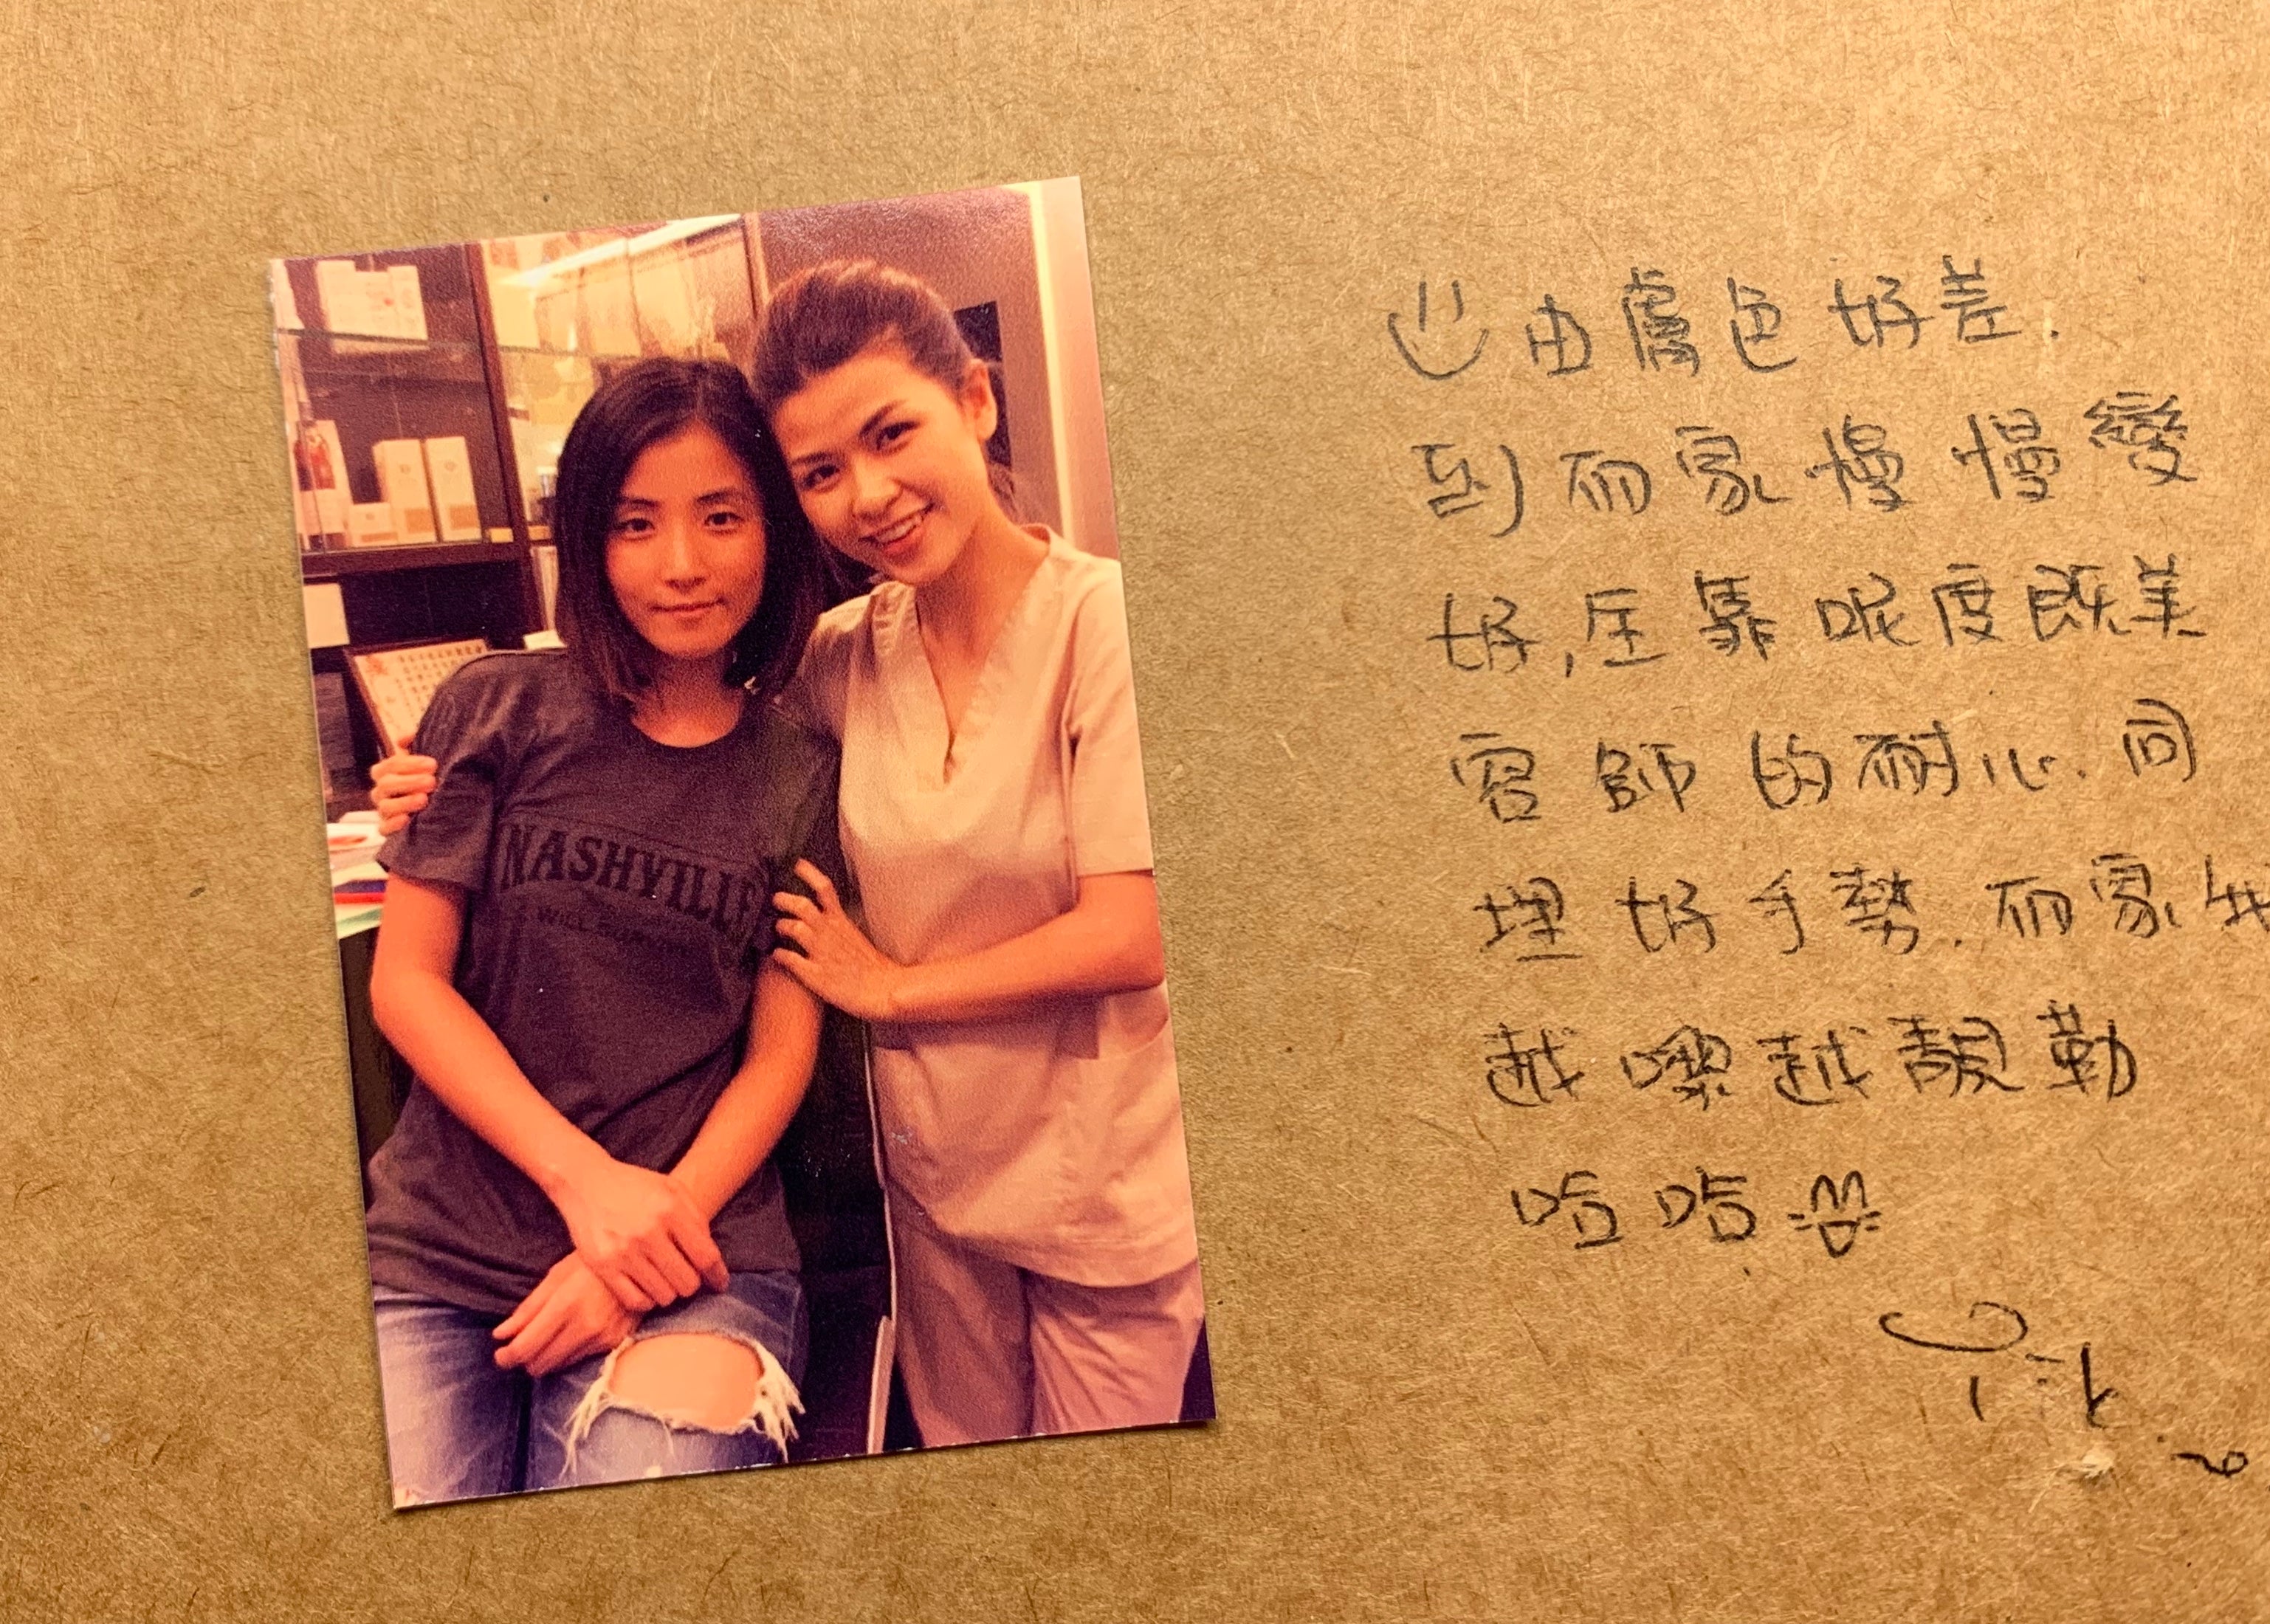 NASHVILLE
由膚色好差.
到而家慢慢變
好,全靠呢度既美
容師的耐心.同
埋好手勢.而家我
越嚟越靚勒
哈哈